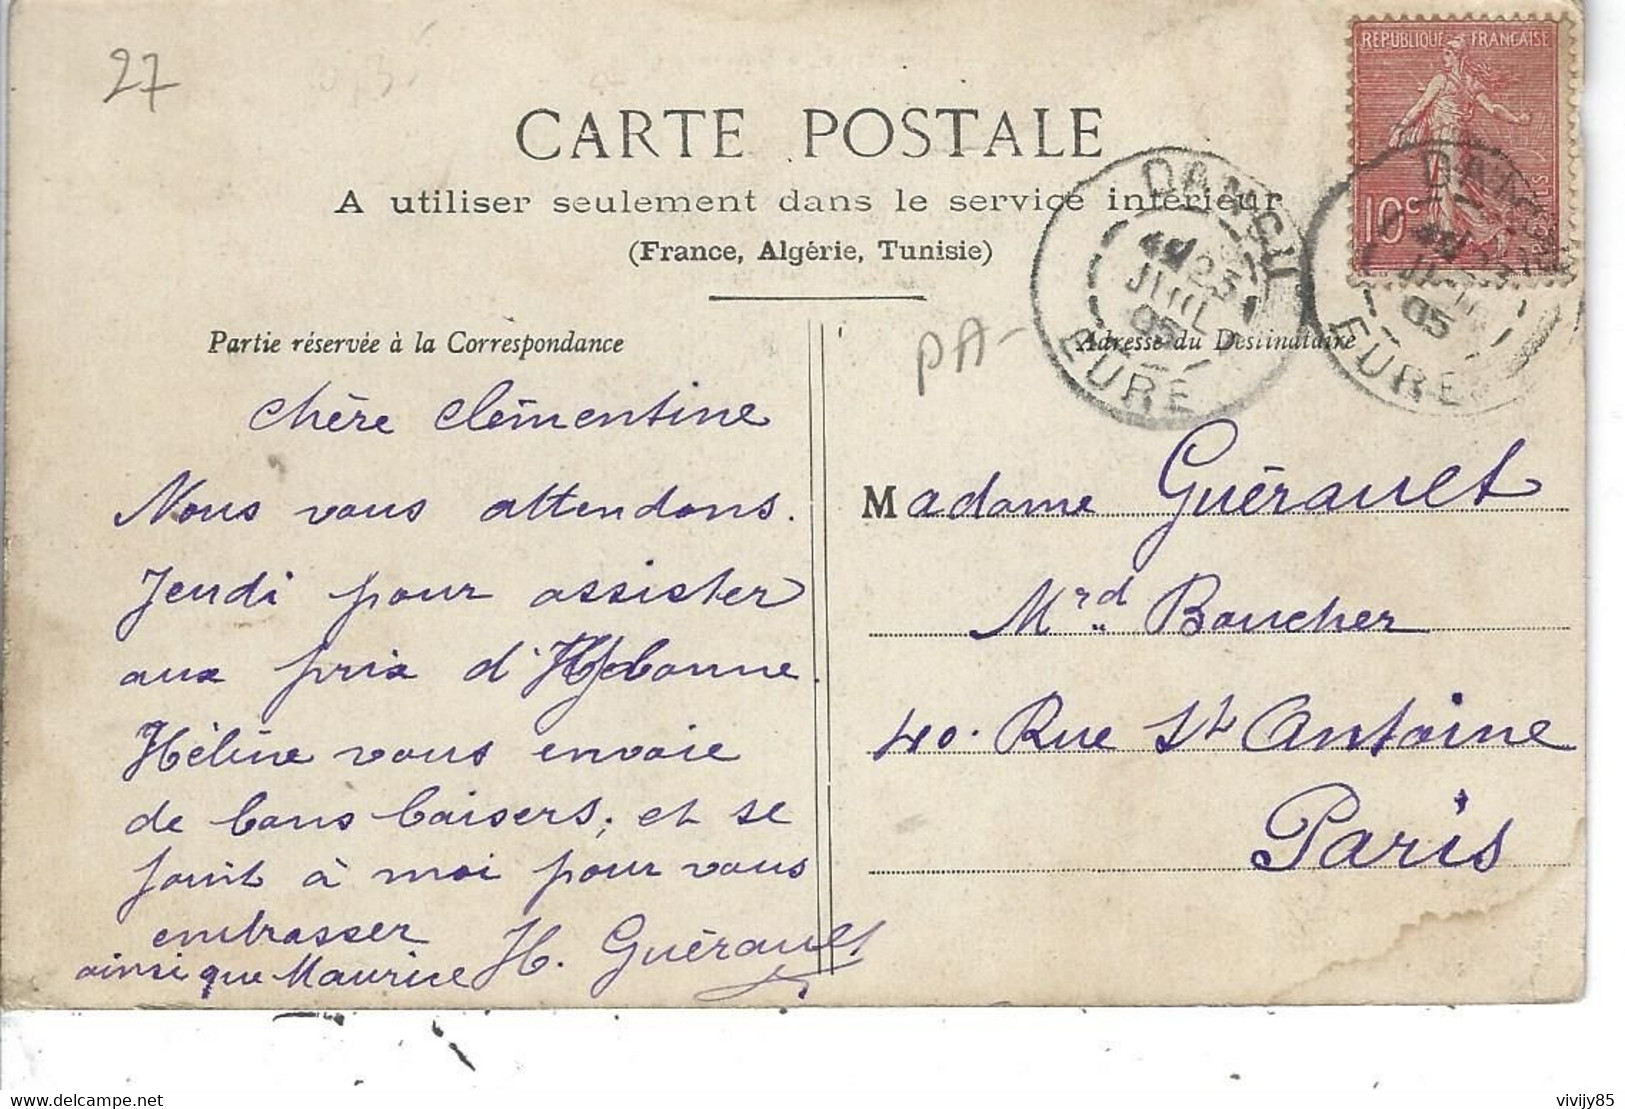 27
CARTE POSTALE
A utiliser seulement dans le service intérieur
(France, Algérie, Tunisie)
REPUBLIQUE FRANÇAISE
10c
DANGU
25
JUIL
05
EURE
DANGU
JUIL
05
EURE
PA-
Partie réservée à la Correspondance
Chère Clémentine
Nous vous attendons.
Jeudi pour assister
aux prix d'
Hélène vous envoie
de bons baisers, et se
joint à moi pour vous
embrasser
ainsi que Maurice H. Guérault
Adresse du Destinataire
Madame Guérault
Mrd Boucher
40. Rue St Antoine
Paris
27
vivijy85